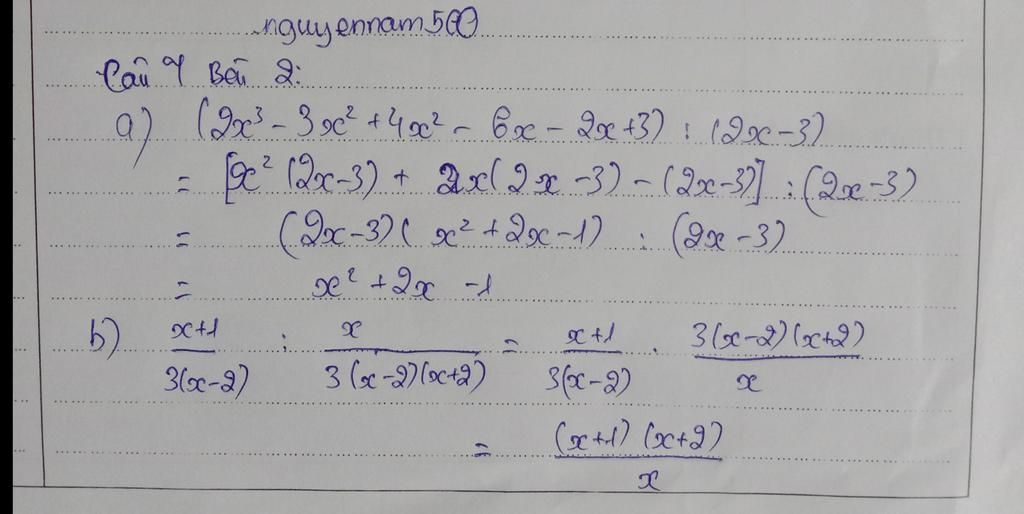 nguyennam500
Câu 4 Bài 2:
a) (2x³ - 3x² + 4x² - 6x - 2x + 3) : (2x - 3)
= [x² (2x - 3) + 2x(2x - 3) - (2x - 3)] : (2x - 3)
= (2x - 3)( x² + 2x - 1) : (2x - 3)
= x² + 2x - 1
b) x+1 / 3(x-2) : x / 3(x-2)(x+2) = x+1 / 3(x-2) . 3(x-2)(x+2) / x
= (x+1)(x+2) / x